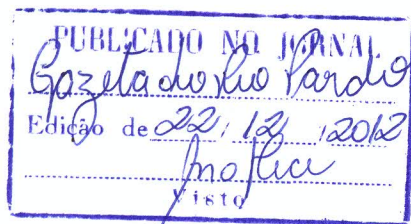 PUBLICADO NO JORNAL
Gazeta do Rio Pardo
Edição de 22 / 12 / 2012
Visto